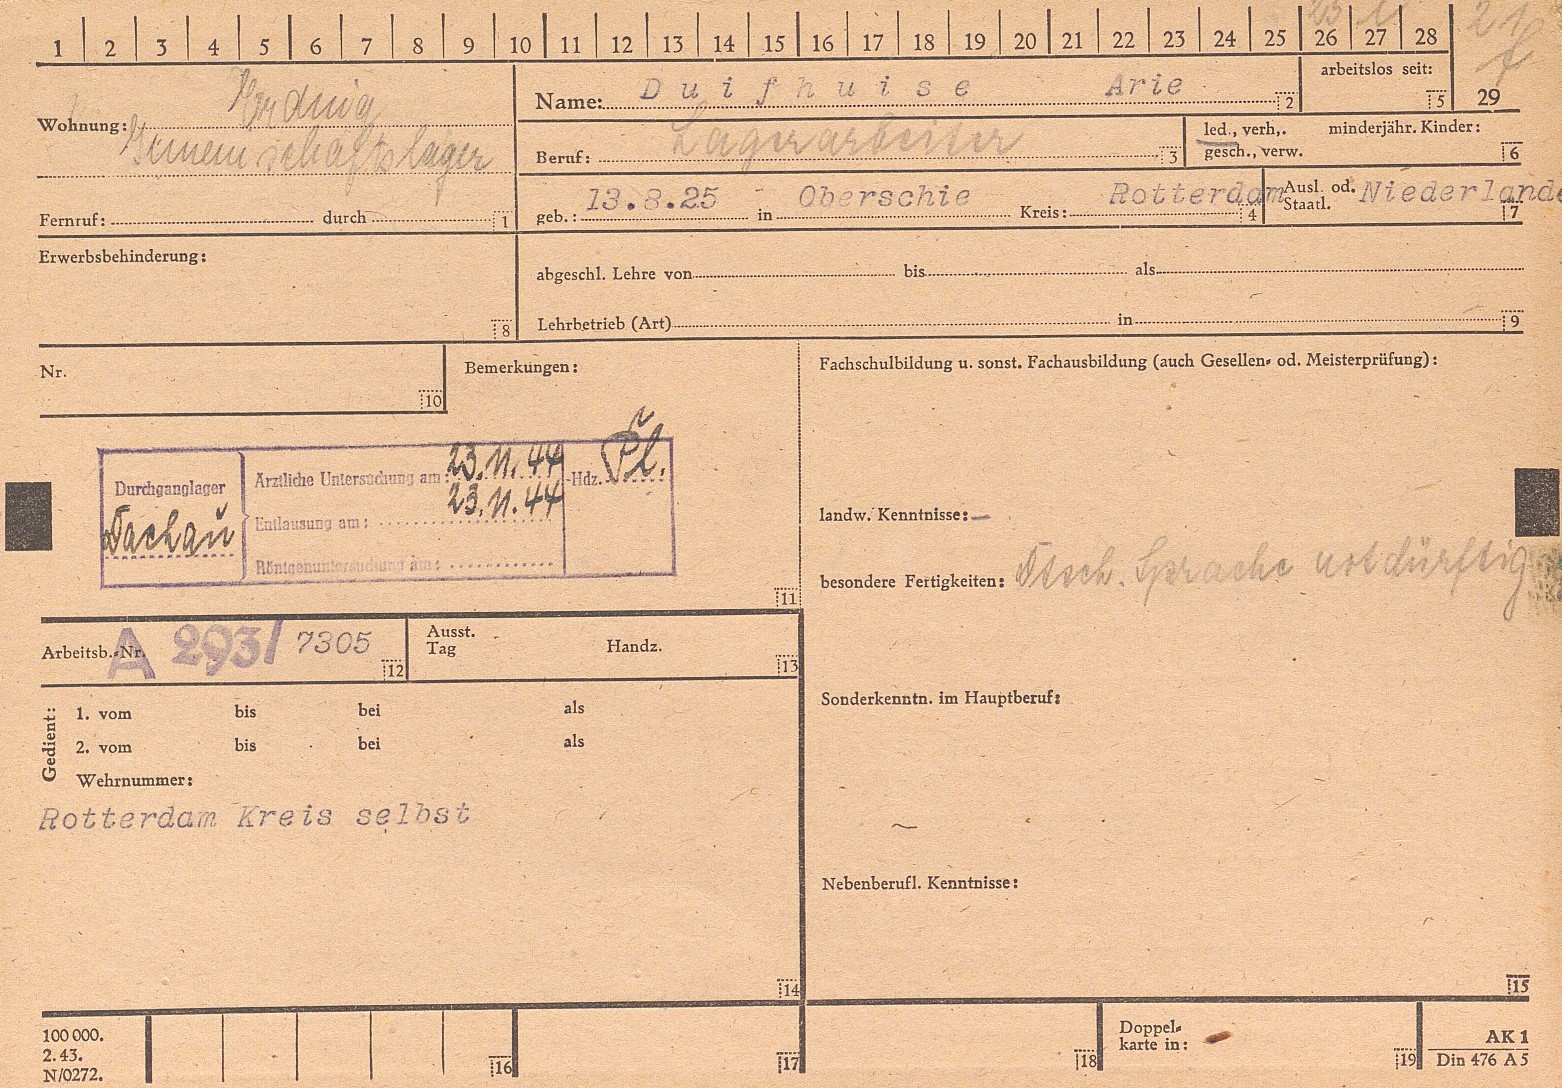 1 2 3 4 5 6 7 8 9 10 11 12 13 14 15 16 17 18 19 20 21 22 23 24 25 26 27 28
29
Wohnung:
Gemeinschaftslager
Fernruf: durch 1
Name: Duifhuise Arie 2
arbeitslos seit: 5
Beruf: Lagerarbeiter 3
led., verh,. minderjähr. Kinder:
gesch., verw. 6
geb.: 13.8.25 in Oberschie Kreis: Rotterdam 4
Ausl. od. Niederlande
Staatl. 7
Erwerbsbehinderung:
8
abgeschl. Lehre von bis als
Lehrbetrieb (Art) in 9
Nr.
10
Bemerkungen:
Durchganglager
Dachau
Ärztliche Untersuchung am: 23.11.44 -Hdz.
Entlausung am: 23.11.44
Röntgenuntersuchung am:
11
Fachschulbildung u. sonst. Fachausbildung (auch Gesellen- od. Meisterprüfung):
landw. Kenntnisse: —
besondere Fertigkeiten: Dtsch. Sprache notdürftig
Sonderkenntn. im Hauptberuf:
Nebenberufl. Kenntnisse:
15
Arbeitsb.-Nr. A 293/ 7305 12
Ausst.
Tag Handz. 13
Gedient:
1. vom bis bei als
2. vom bis bei als
Wehrnummer:
Rotterdam Kreis selbst
14
100 000.
2. 43.
N/0272.
16
17
18
Doppel-
karte in:
19
AK 1
Din 476 A 5